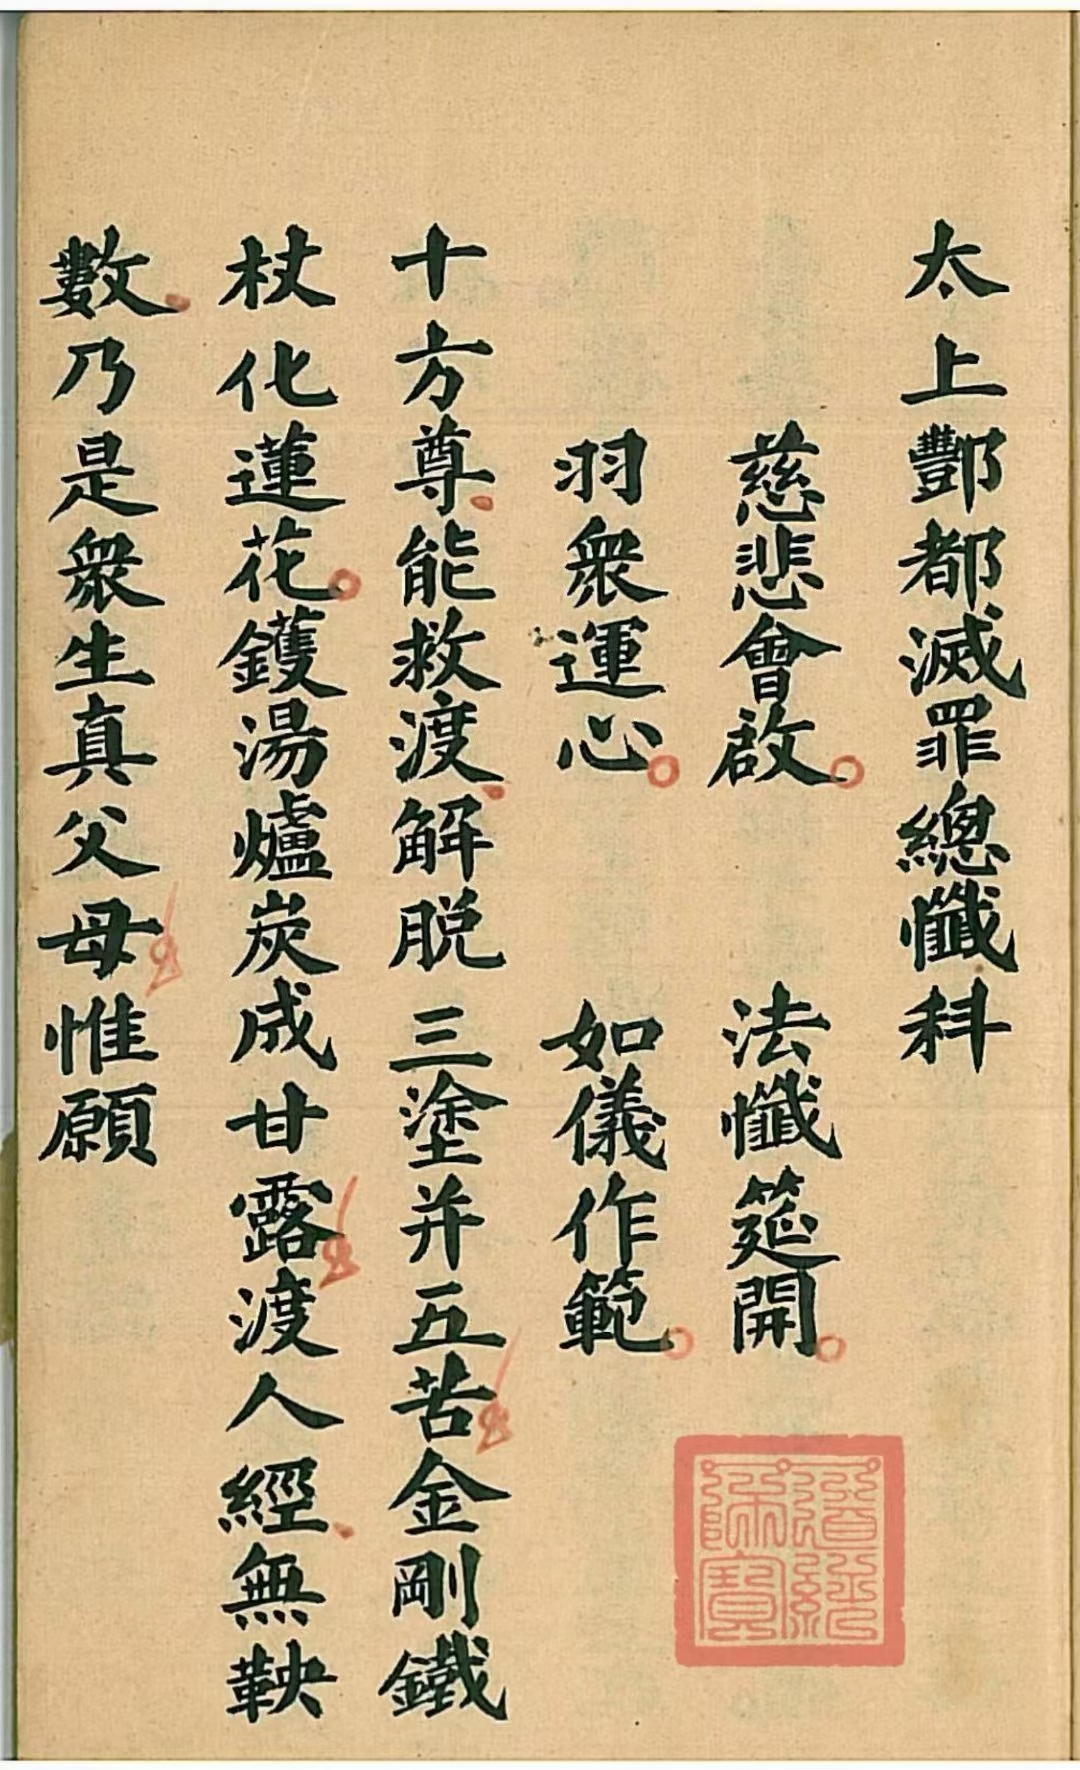 太上酆都滅罪總懺科
慈悲會啟。　法懺筵開。
羽衆運心。　如儀作範。
十方尊能救渡解脱三塗并五苦金剛鐵
杖化蓮花。鑊湯爐炭成甘露渡人經無鞅
數乃是衆生真父母惟願
道經師寶